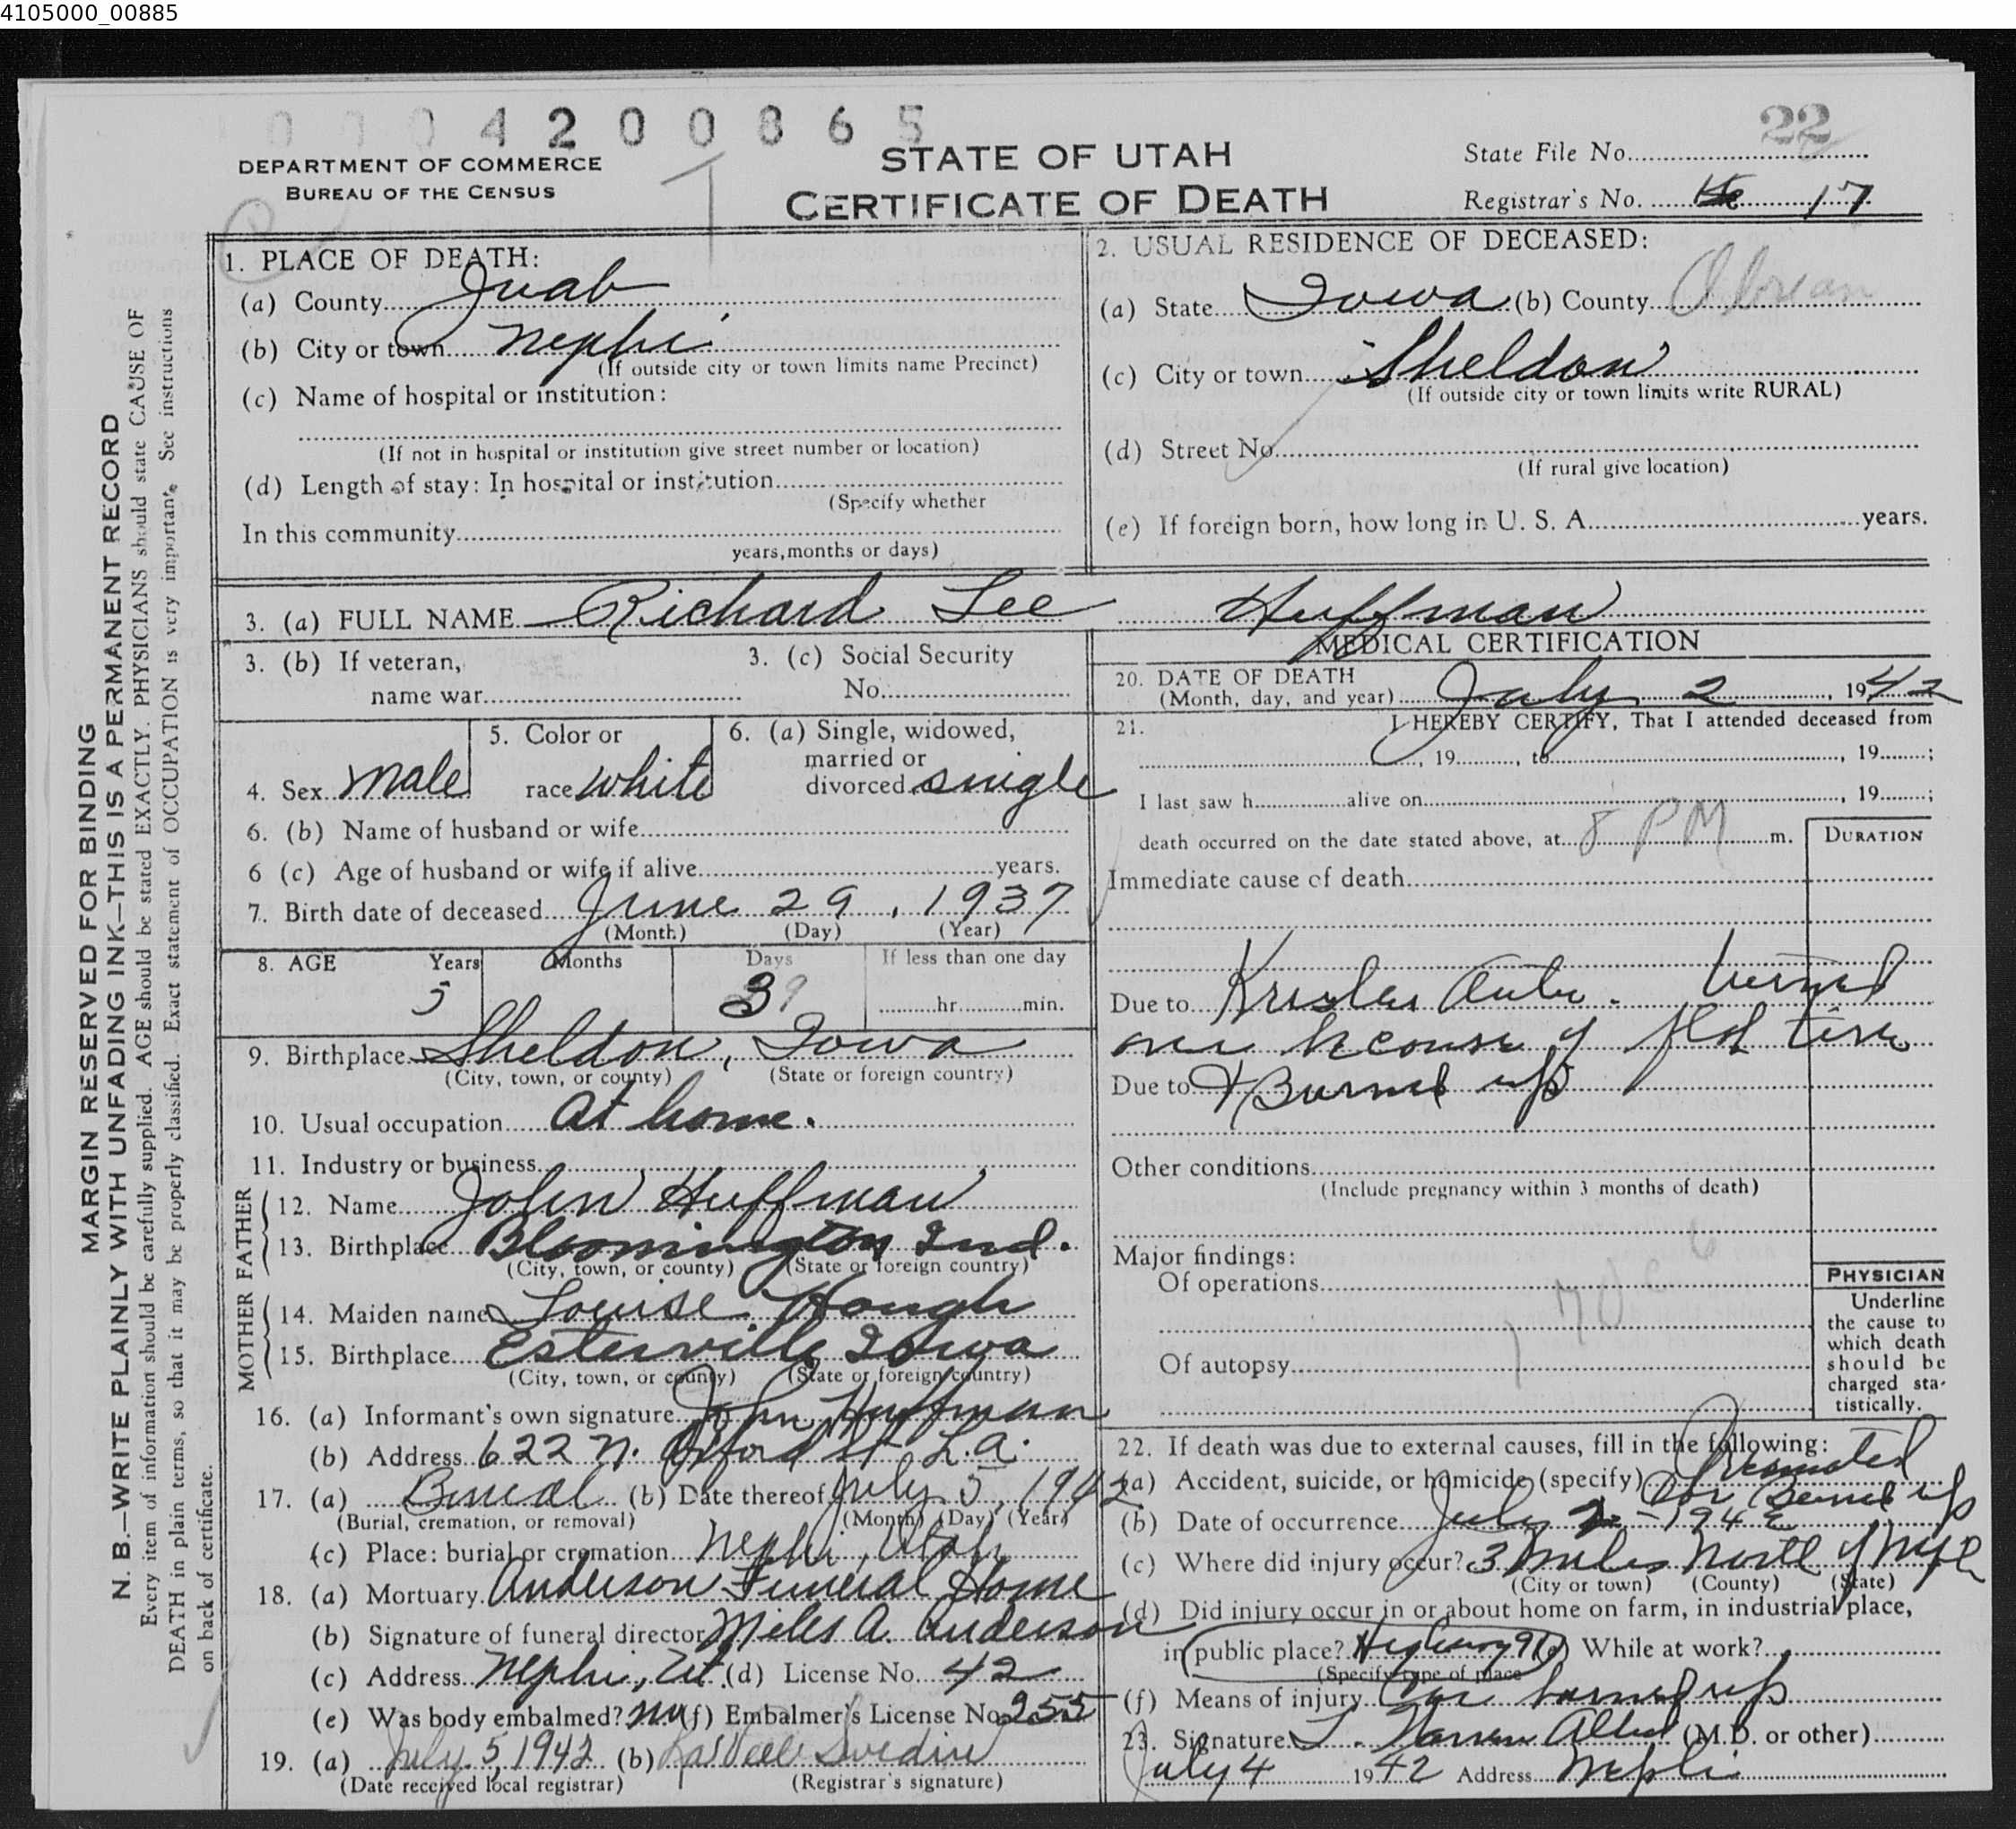 4105000_00885
0 0 0 4 2 0 0 8 6 5
22
DEPARTMENT OF COMMERCE
BUREAU OF THE CENSUS
STATE OF UTAH
CERTIFICATE OF DEATH
State File No.
Registrar's No. 17
MARGIN RESERVED FOR BINDING
N. B.—WRITE PLAINLY WITH UNFADING INK—THIS IS A PERMANENT RECORD
Every item of information should be carefully supplied. AGE should be stated EXACTLY. PHYSICIANS should state CAUSE OF
DEATH in plain terms, so that it may be properly classified. Exact statement of OCCUPATION is very important. See instructions
on back of certificate.
1. PLACE OF DEATH:
(a) County Juab
(b) City or town Nephi
(If outside city or town limits name Precinct)
(c) Name of hospital or institution:
(If not in hospital or institution give street number or location)
(d) Length of stay: In hospital or institution
(Specify whether
In this community
years, months or days)
2. USUAL RESIDENCE OF DECEASED:
(a) State Iowa (b) County Obrian
(c) City or town Sheldon
(If outside city or town limits write RURAL)
(d) Street No.
(If rural give location)
(e) If foreign born, how long in U. S. A. years.
3. (a) FULL NAME Richard Lee Huffman
3. (b) If veteran,
name war
3. (c) Social Security
No.
4. Sex Male
5. Color or
race White
6. (a) Single, widowed,
married or
divorced single
6. (b) Name of husband or wife
6 (c) Age of husband or wife if alive years.
7. Birth date of deceased June 29, 1937
(Month) (Day) (Year)
8. AGE Years Months Days If less than one day
5 3 hr. min.
9. Birthplace Sheldon, Iowa
(City, town, or county) (State or foreign country)
10. Usual occupation At home.
11. Industry or business
FATHER
12. Name John Huffman
13. Birthplace Bloomington Ind.
(City, town, or county) (State or foreign country)
MOTHER
14. Maiden name Louise Hough
15. Birthplace Esterville Iowa
(City, town, or county) (State or foreign country)
16. (a) Informant's own signature John Huffman
(b) Address 622 N. Oxford St. L.A.
17. (a) Bureal (b) Date thereof July 5, 1942
(Burial, cremation, or removal) (Month) (Day) (Year)
(c) Place: burial or cremation Nephi, Utah
18. (a) Mortuary Anderson Funeral Home
(b) Signature of funeral director Miles A. Anderson
(c) Address Nephi, Ut. (d) License No. 42
(e) Was body embalmed? no (f) Embalmer's License No. 255
19. (a) July 5, 1942 (b) Swedin
(Date received local registrar) (Registrar's signature)
MEDICAL CERTIFICATION
20. DATE OF DEATH
(Month, day, and year) July 2, 1942
21. I HEREBY CERTIFY, That I attended deceased from
, 19 , to , 19 ;
I last saw h alive on , 19 ;
death occurred on the date stated above, at 8 PM m.
DURATION
Immediate cause of death
Due to Auto. turned
over because of flat tire
Due to & Burned up
Other conditions
(Include pregnancy within 3 months of death)
Major findings:
Of operations
Of autopsy
PHYSICIAN
Underline
the cause to
which death
should be
charged sta-
tistically.
22. If death was due to external causes, fill in the following:
(a) Accident, suicide, or homicide (specify) Car burned up
(b) Date of occurrence July 2 - 1942
(c) Where did injury occur? 3 Miles North of Nephi
(City or town) (County) (State)
(d) Did injury occur in or about home on farm, in industrial place,
in public place? Highway 91 While at work?
(Specify type of place
(f) Means of injury Car burned up
23. Signature (M.D. or other)
July 4 1942 Address Nephi